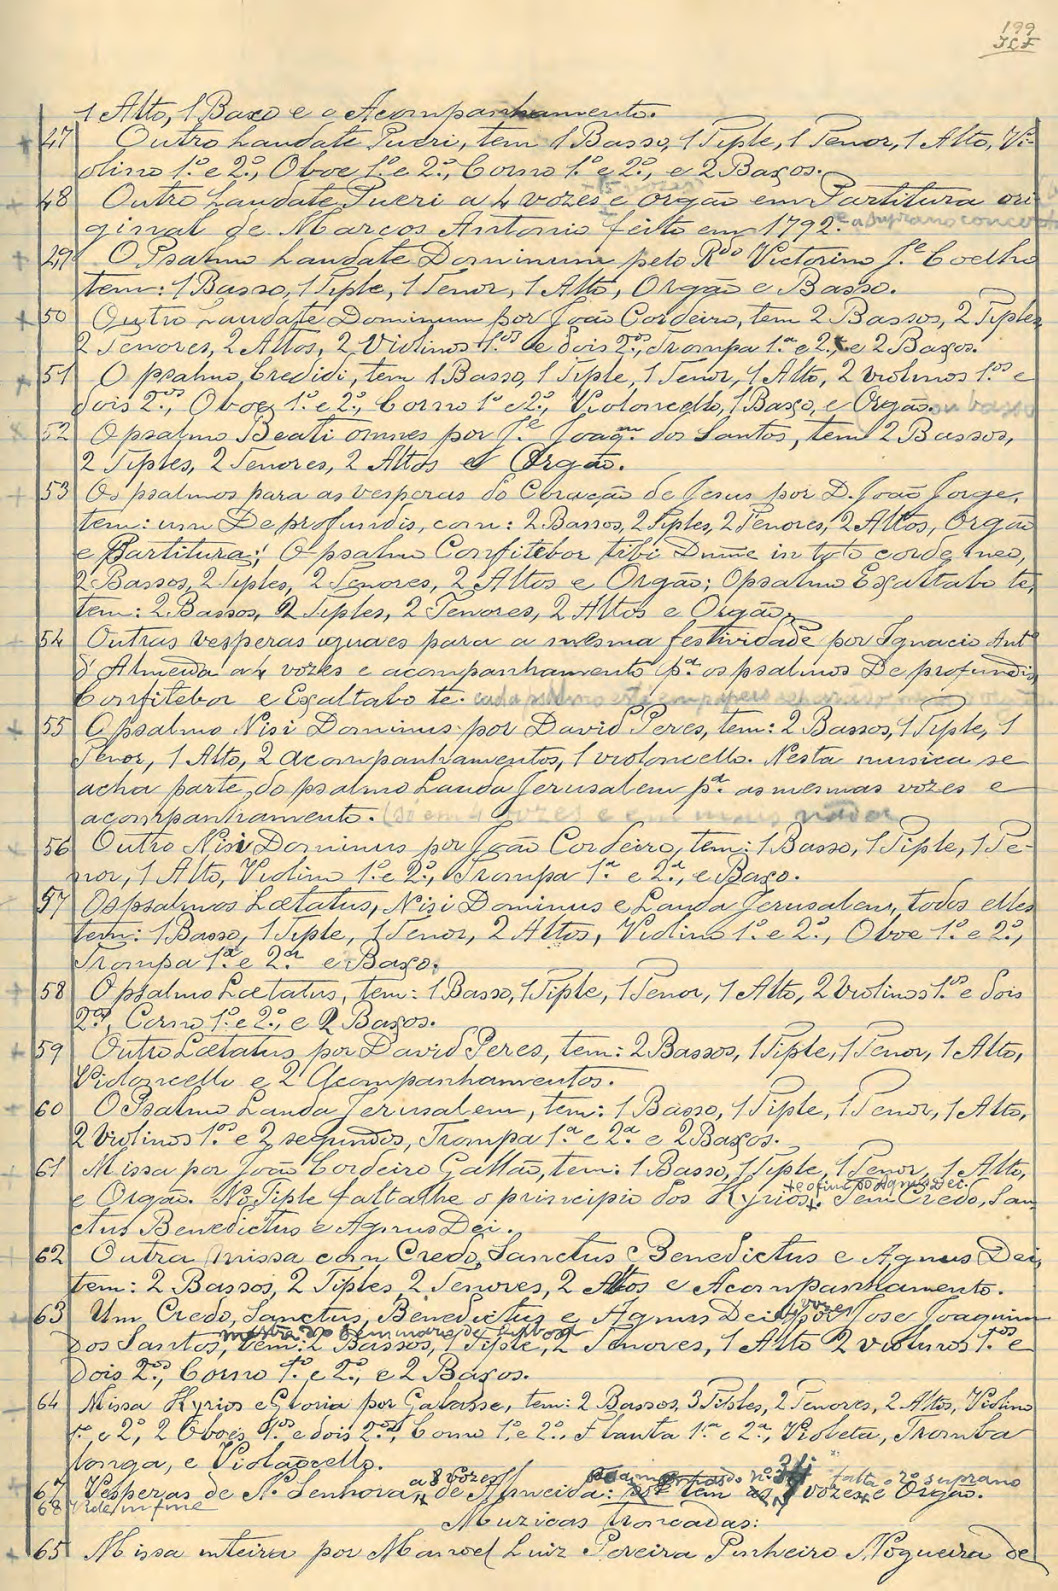 199
1 Alto, 1 Baxo e o Acompanhamento.
47 Outro Laudate Pueri, tem 1 Basso, 1 Tiple, 1 Tenor, 1 Alto, Vi-
olino 1.º e 2.º, Oboe 1.º e 2.º, Corno 1.º e 2.º, e 2 Baxos.
48 Outro Laudate Pueri a 4 vozes e orgão em Partitura ori
ginal de Marcos Antonio feito em 1792.
49 O Psalmo Laudate Dominum pelo Rdo Victorino J.e Coelho
tem: 1 Basso, 1 Tiple, 1 Tenor, 1 Alto, Orgão e Basso.
50 Outro Laudate Dominum por João Cordeiro, tem 2 Bassos, 2 Tiples,
2 Tenores, 2 Altos, 2 Violinos 1.os e dois 2.os, Trompa 1.a e 2.a, e 2 Baxos.
51 O psalmo, Credidi, tem 1 Basso, 1 Tiple, 1 Tenor, 1 Alto, 2 violinos 1.os e
dois 2.os, Oboe 1.º e 2.º, Corno 1.º e 2.º, Violoncello, 1 Baxo, e Orgão.
52 O psalmo Beati omnes por J.e Joaq.m dos Santos, tem 2 Bassos,
2 Tiples, 2 Tenores, 2 Altos e Orgão.
53 Os psalmos para as vesperas do Coração de Jesus por D. João Jorge,
tem: um De profundis, com: 2 Bassos, 2 Tiples, 2 Tenores, 2 Altos, Orgão
e Partitura; O psalmo Confitebor tibi Dnne in toto corde meo,
2 Bassos, 2 Tiples, 2 Tenores, 2 Altos e Orgão; O psalmo Exaltabo te,
tem: 2 Bassos, 2 Tiples, 2 Tenores, 2 Altos e Orgão.
54 Outras vesperas iguaes para a mesma festividade por Ignacio Ant.
d'Almeida a 4 vozes e acompanhamento p.a os psalmos De profundis,
Confitebor e Exaltabo te.
55 O psalmo Nisi Dominus por David Peres, tem: 2 Bassos, 1 Tiple, 1
Tenor, 1 Alto, 2 acompanhamentos, 1 violoncello. Nesta musica se
acha parte do psalmo Lauda Jerusalem p.a as mesmas vozes e
acompanhamento. (só em 4 vozes e em mais nada
56 Outro Nisi Dominus por João Cordeiro, tem: 1 Basso, 1 Tiple, 1 Te-
nor, 1 Alto, Violino 1.º e 2.º, Trompa 1.a e 2.a, e Baxo.
57 Os psalmos Lætatus, Nisi Dominus e Lauda Jerusalem, todos elles
tem: 1 Basso, 1 Tiple, 1 Tenor, 2 Altos, Violino 1.º e 2.º, Oboe 1.º e 2.º,
Trompa 1.a e 2.a e Baxo.
58 O psalmo Lætatus, tem: 1 Basso, 1 Tiple, 1 Tenor, 1 Alto, 2 violinos 1.os e dois
2.os, Corno 1.º e 2.º, e 2 Baxos.
59 Outro Lætatus por David Peres, tem: 2 Bassos, 1 Tiple, 1 Tenor, 1 Alto,
Violoncello e 2 Acompanhamentos.
60 O Psalmo Lauda Jerusalem, tem: 1 Basso, 1 Tiple, 1 Tenor, 1 Alto,
2 Violinos 1.os e 2 segundos, Trompa 1.a e 2.a e 2 Baxos.
61 Missa por João Cordeiro Galhão, tem: 1 Basso, 1 Tiple, 1 Tenor, 1 Alto,
e o fim do Agnus Dei.
e Orgão. No Tiple faltalhe o principio dos Kyrios. Tem Credo, San-
ctus Benedictus e Agnus Dei.
62 Outra missa com Credo, Sanctus Benedictus e Agnus Dei,
tem: 2 Bassos, 2 Tiples, 2 Tenores, 2 Altos e Acompanhamento.
63 Um Credo, Sanctus, Benedictus e Agnus Dei por Jose Joaquim
dos Santos, tem: 2 Bassos, 1 Tiple, 2 Tenores, 1 Alto 2 violinos 1.os e
dois 2.os, Corno 1.º e 2.º, e 2 Baxos.
64 Missa Kyrios e Gloria por Galasse, tem: 2 Bassos, 3 Tiples, 2 Tenores, 2 Altos, Violino
1.º e 2.º, 2 Oboes 1.os e dois 2.os, Corno 1.º e 2.º, Flauta 1.a e 2.a, Violeta, Tromba
longa, e Violoncello.
a 8 vozes falta o 2.º suprano
67 Vesperas de N. Senhora de Almeida: tem vozes e Orgão.
68 Vide in fine
Muzicas troncadas:
65 Missa inteira por Manoel Luiz Pereira Pinheiro Nogueira de